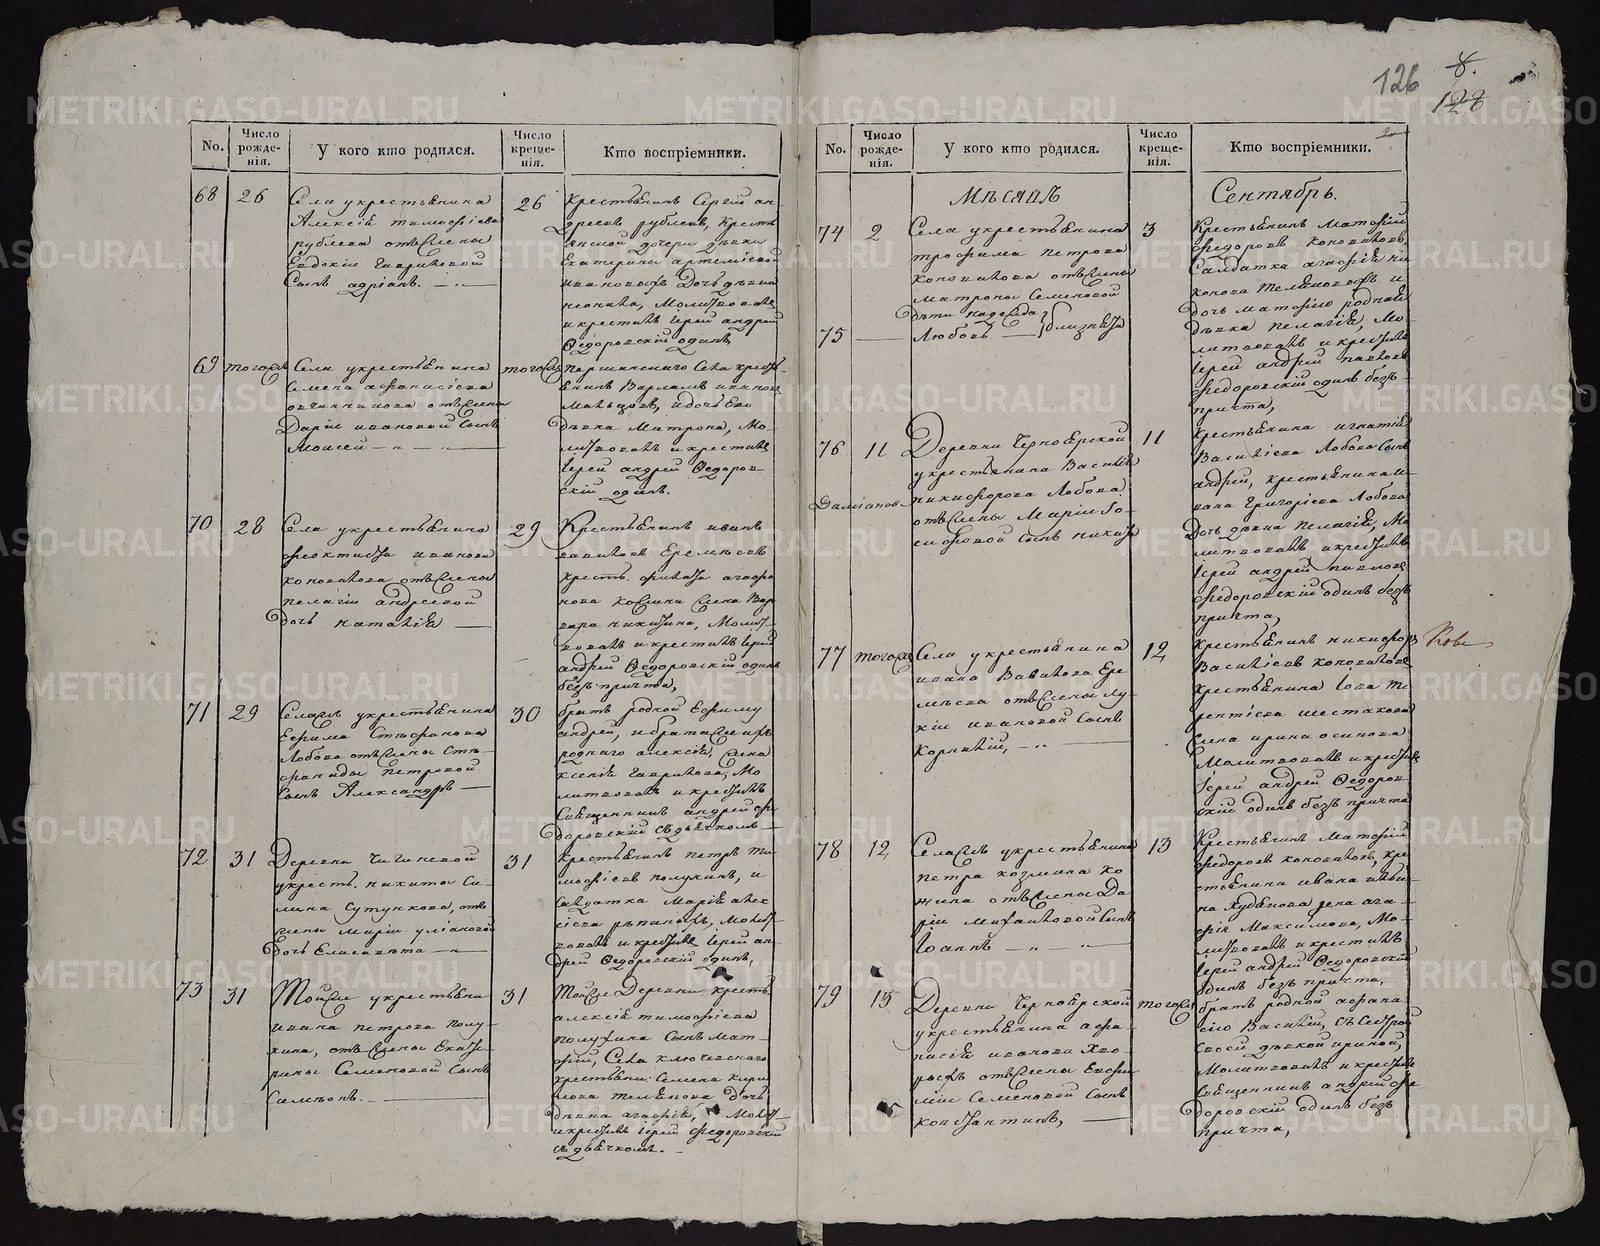 126
8.
128
No.
Число рожде-нія.
У кого кто родился.
Число креще-нія.
Кто воспріемники.
68
26
Села у крестьянина
Алексѣя Тимофѣева
рублева отъ жены
Евдокіи Гавриловой
Сынъ адріанъ.
26
Крестьянинъ Сергій ан
дреевъ рублевъ, Кресть
янской дочери дѣвки
Екатерины артеміевой
ивановыхъ Дочь дѣвка
Молитвовалъ
и крестилъ іерей андрей
Ѳедоровскій одинъ
69
тогожъ
Села у крестьянина
Семена афанасіева
овчинникова отъ жены
Даріи ивановой Сынъ
Моисей
тогожъ
першинскаго Села кресть-
янинъ Варламъ иванов
Мальцовъ, и дочь Его
дѣвка Матрона, Мо-
литвовалъ и крестилъ
іерей андрей Ѳедоров-
скій одинъ.
70
28
Села у крестьянина
феоктиста иванова
коновалова отъ жены
пелагіи андреевой
дочь наталія
29
Крестьянинъ иванъ
вавиловъ Еремѣевъ
кресть. филата агафо
нова жена Вар
вара никитина, Молит
вовалъ и крестилъ іерей
андрей Ѳедоровскій одинъ
безъ причта,
71
29
Селажъ у крестьянина
Ефима Стефанова
Лобова отъ жены Сте-
фаниды петровой
Сынъ Александръ
30
братъ родной Ефиму
андрей, и брата жъ ихъ
роднаго алексѣя, жена
ксенія Гаврилова, Мо
литвовалъ и крестилъ
Священникъ андрей Фе
доровскій съ дьячкомъ
72
31
Деревни Чигиневой
у кресть. никиты Си-
лина Сутункова, отъ
жены Маріи уліановой
дочь Елисавета
31
Крестьянинъ петръ ти
мофѣевъ полухинъ, и
Салдатка Марія алек
сіева Молит
вовалъ и крестилъ іерей ан
дрей Ѳедоровскій одинъ,
73
31
Тойже у крестьяни
ивана петрова полу-
хина, отъ жены Екате-
рины Семеновой Сынъ
Симеонъ.
31
Тойже Деревни кресть.
алексѣя тимофѣева
полухина Сынъ Мат-
фій, Села ключевскаго
крестьяни. Семена кири
лова телѣнова дочь
дѣвка агафія, Молит
и крестилъ іерей Федоровскій
съ дьячкомъ.
No.
Число рожде-нія.
У кого кто родился.
Число креще-нія.
Кто воспріемники.
Мѣсяцъ
Сентябрь.
74
2
Села у крестьянина
трофима петрова
Коновалова отъ жены
Матроны Семеновой
дѣти надежда
75
Любовь
близнята
3
Крестьянинъ Матфій
Федоровъ Коноваловъ,
Салдатка агафія ни
конова телѣновыхъ и
дочь матфію родная
дѣвка пелагія, Мо-
литвовалъ и крестилъ
іерей андрей павловъ
Федоровскій одинъ безъ
причта,
76
11
Даміановъ
Деревни Черноярской
у крестьянина Василья
никифорова Лобова
отъ жены Маріи іо-
сифовой Сынъ никита
11
Крестьянина игнатія
Василіева Лобова Сынъ
андрей, крестьянина и-
вана Григоріева Лобова
дочь дѣвка пелагія, Мо
литвовалъ и крестилъ
іерей андрей павловъ
Федоровскій одинъ безъ
причта,
77
тогожъ
Села у крестьянина
ивана Вавилова Ере-
мѣева отъ жены Лу-
кіи ивановой Сынъ
Корнилій,
12
Крестьянинъ никифоръ
Василіевъ коноваловъ
крестьянина іова те
рентіева шестакова
жена ирина осипова
Молитвовалъ и крестилъ
іерей андрей Ѳедоров-
скій одинъ безъ причта
78
12
Селажъ у крестьянина
петра козмина ко
жина отъ жены Да
ріи Михаиловой Сынъ
Іоаннъ
13
Крестьянинъ Матфій
Федоровъ коноваловъ, кре
стьянина ивана
на Худякова жена ага-
фія Максимова, Мо-
литвовалъ и крестилъ
іерей андрей Ѳедоровскій
одинъ безъ причта,
79
15
Деревни Черноярской
у крестьянина афа-
насія иванова
отъ жены Евфи
міи Семеновой Сынъ
константинъ,
тогожъ
братъ родной афана-
сію Василій, съ Сестрой
своей дѣвкой ириной,
Молитвовалъ и крестилъ
Священникъ андрей Фе
доровскій одинъ безъ
причта,